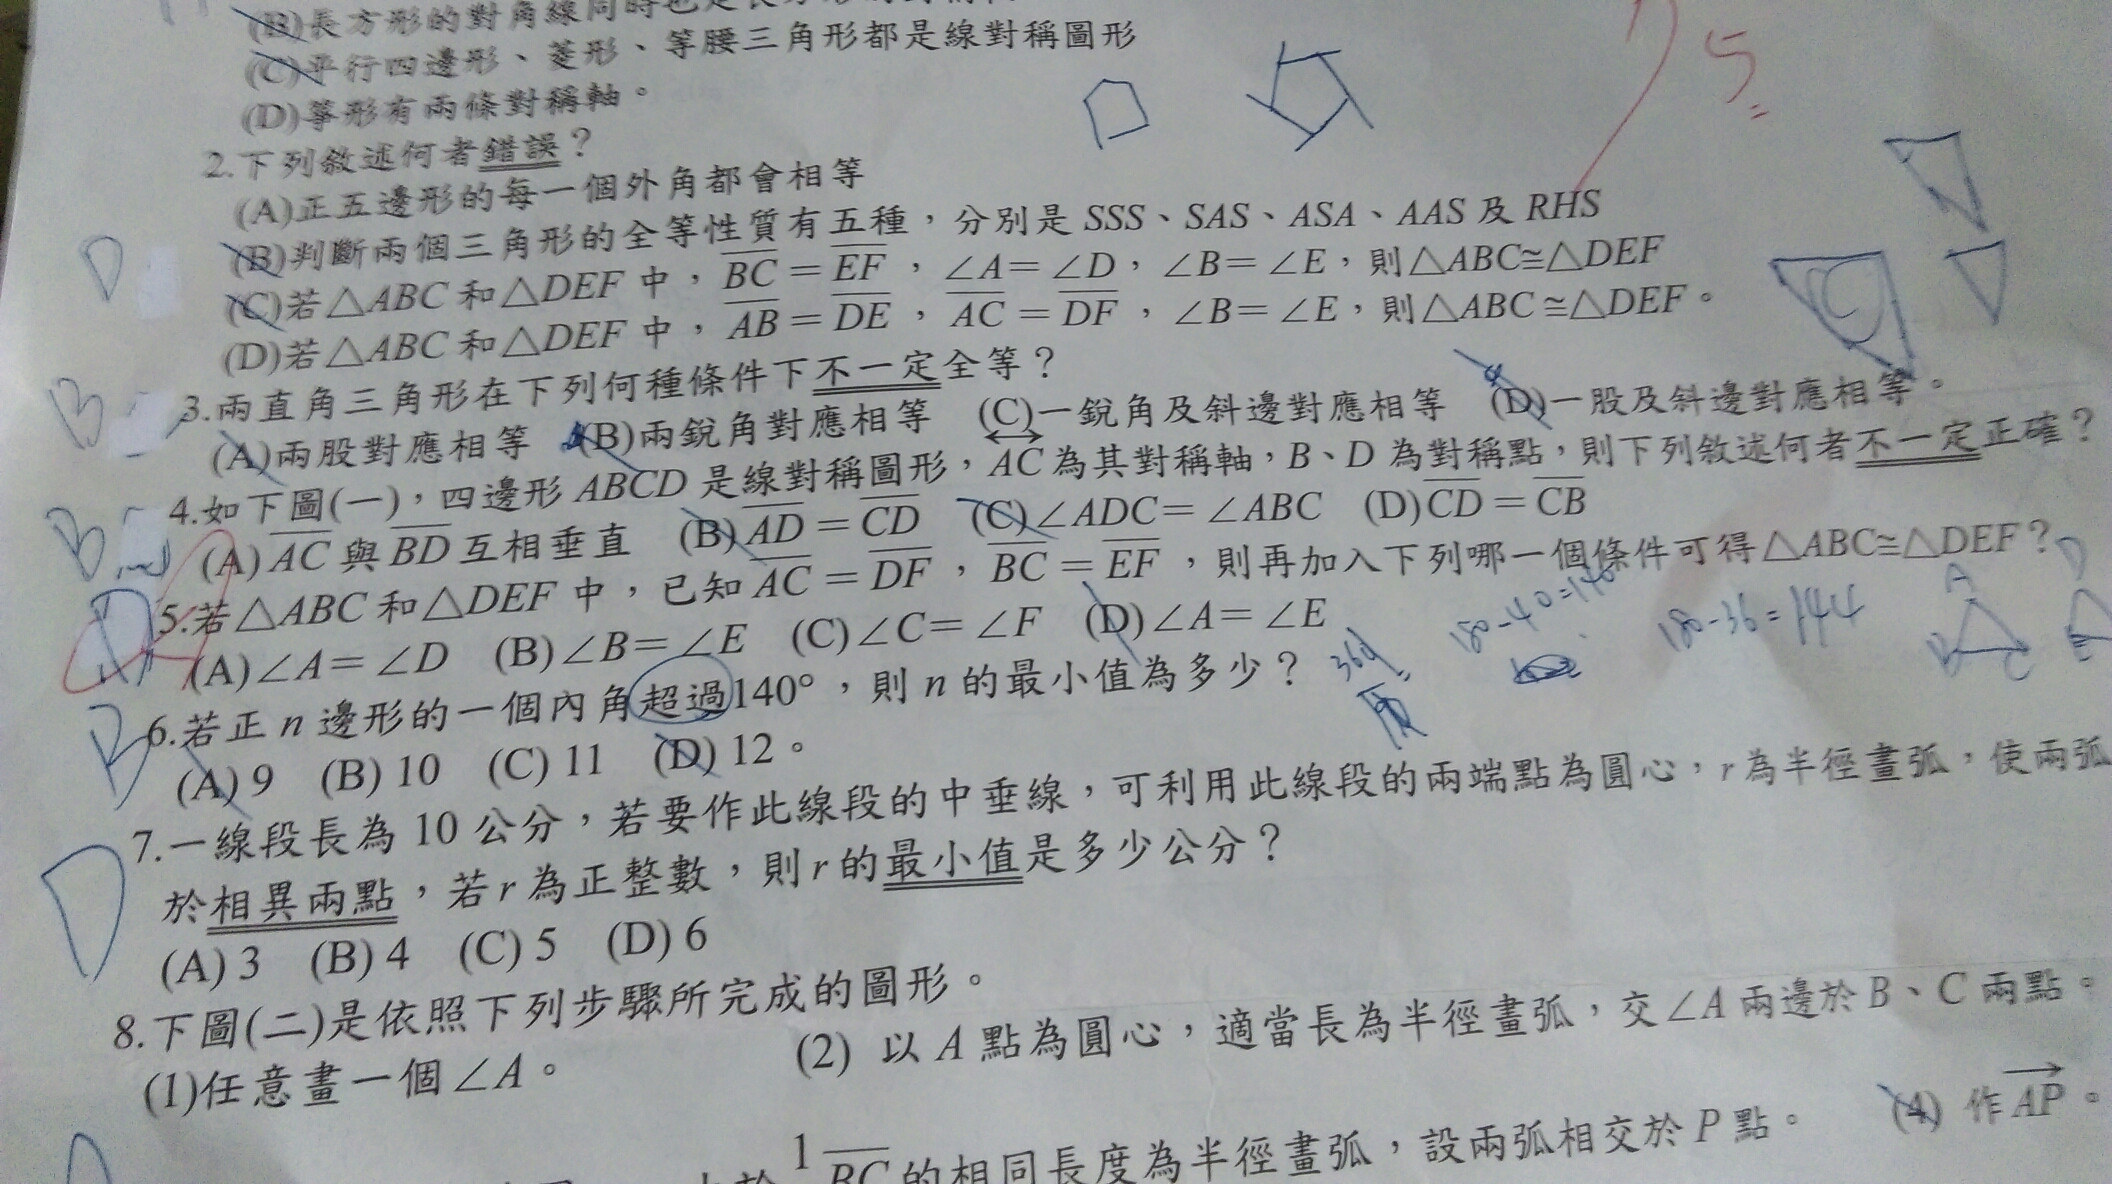 (B)長方形的對角線同時也是長方形的對稱軸
(C)平行四邊形、菱形、等腰三角形都是線對稱圖形
(D)箏形有兩條對稱軸。
5
2.下列敘述何者錯誤？
(A)正五邊形的每一個外角都會相等
D (B)判斷兩個三角形的全等性質有五種，分別是 SSS、SAS、ASA、AAS 及 RHS
(C)若△ABC 和△DEF 中，BC = EF，∠A= ∠D，∠B= ∠E，則△ABC≅△DEF
(D)若△ABC 和△DEF 中，AB = DE，AC = DF，∠B= ∠E，則△ABC≅△DEF。
B 3.兩直角三角形在下列何種條件下不一定全等？
(A)兩股對應相等 (B)兩銳角對應相等 (C)一銳角及斜邊對應相等 (D)一股及斜邊對應相等。
B 4.如下圖(一)，四邊形 ABCD 是線對稱圖形，AC 為其對稱軸，B、D 為對稱點，則下列敘述何者不一定正確？
(A) AC 與 BD 互相垂直 (B) AD = CD (C) ∠ADC= ∠ABC (D) CD = CB
5.若△ABC 和△DEF 中，已知 AC = DF，BC = EF，則再加入下列哪一個條件可得△ABC≅△DEF？
(A)∠A= ∠D (B)∠B= ∠E (C)∠C= ∠F (D)∠A= ∠E
180-40=140
180-36=144
A D
B C E
B 6.若正 n 邊形的一個內角超過140°，則 n 的最小值為多少？
(A) 9 (B) 10 (C) 11 (D) 12。
D 7.一線段長為 10 公分，若要作此線段的中垂線，可利用此線段的兩端點為圓心，r 為半徑畫弧，使兩弧
於相異兩點，若 r 為正整數，則 r 的最小值是多少公分？
(A) 3 (B) 4 (C) 5 (D) 6
8.下圖(二)是依照下列步驟所完成的圖形。
(1)任意畫一個∠A。 (2) 以 A 點為圓心，適當長為半徑畫弧，交∠A 兩邊於 B、C 兩點。
大於 1 BC 的相同長度為半徑畫弧，設兩弧相交於 P 點。 (4) 作 AP。